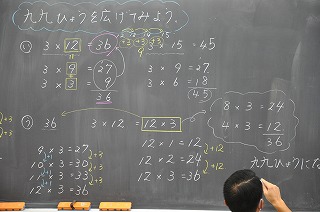 九九ひょうを広げてみよう。
(1) 3×12=36
3×9=27
3×3=9
36
3×15=45
3×9=27
3×6=18
45
(2) 36
3×12=12×3
9×3=27
10×3=30
11×3=33
12×3=36
+3
+3
+3
12×1=12
12×2=24
12×3=36
+12
+12
8×3=24
4×3=12
36
九九ひょうにな